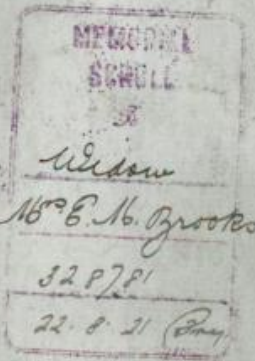 MEMORIAL
SCROLL
Widow
Mrs E. M. Brooks
328781
22.8.21